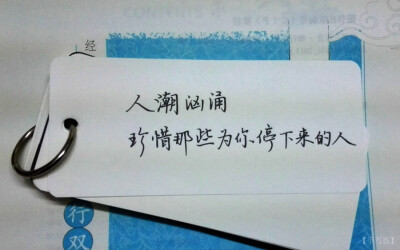 经
人潮汹涌
珍惜那些为你停下来的人
行
双